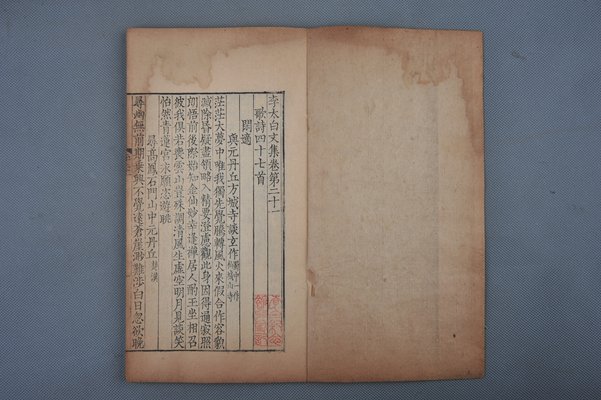 李太白文集卷第二十一
歌詩四十七首
閑適
與元丹丘方城寺談玄作
茫茫大夢中唯我獨先覺騰轉風火來假合作容貌
滅除昏疑盡領略入精要澄慮觀此身因得通寂照
朗悟前後際始知金仙妙幸逢禪居人酌玉坐相召
彼我俱若喪雲山豈殊調清風生虛空明月見談笑
怡然青蓮宮永願恣遊眺
尋高鳳石門山中元丹丘
尋幽無前期乘興不覺遠蒼崖渺難涉白日忽欲晚